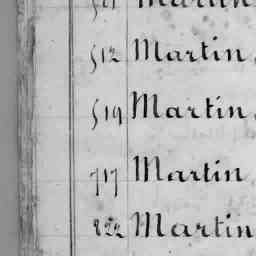 Martin
512 Martin
519 Martin
717 Martin
822 Martin